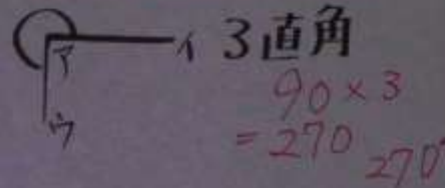 ア イ 3直角
ウ 90×3
=270 270°